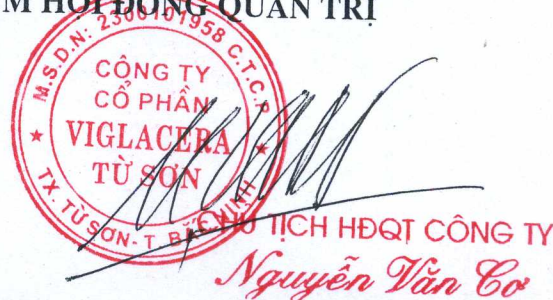 M HỘI ĐỒNG QUẢN TRỊ
M.S.D.N: 2300101958 C.T.C.P
CÔNG TY
CỔ PHẦN
VIGLACERA
TỪ SƠN
TX. TỪ SƠN - T. BẮC NINH
CHỦ TỊCH HĐQT CÔNG TY
Nguyễn Văn Cơ